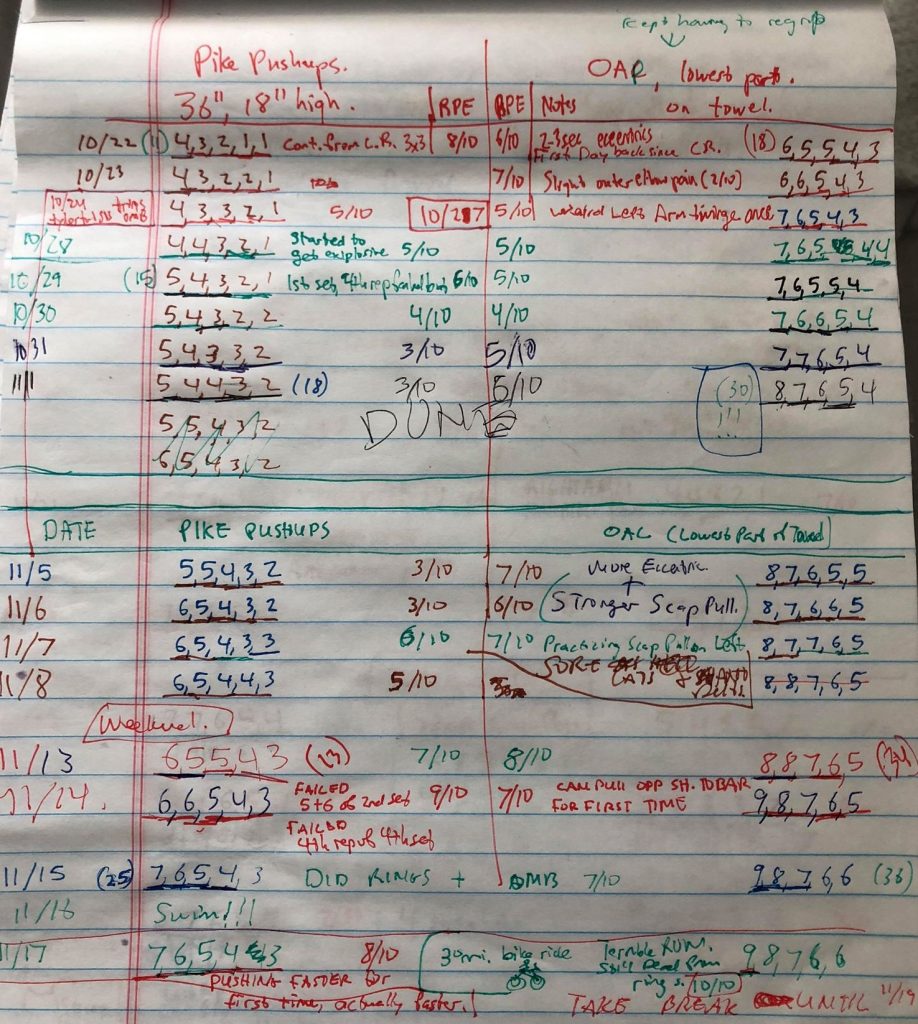 Kept having to regrip
Pike Pushups. OAP, lowest part.
36", 18" high. RPE RPE Notes on towel.
10/22 (11) 4,3,2,1,1 Cont. from C.R. 3x3 8/10 6/10 2-3sec eccentrics (18) 6,5,5,4,3
First Day back since C.R.
10/23 4,3,2,2,1 7/10 Slight outer elbow pain (2/10) 6,6,5,4,3
10/24 4,3,3,2,1 5/10 10/27 5/10 Left Arm once 7,6,5,4,3
10/28 4,4,3,2,1 Started to get explosive 5/10 5/10 7,6,5,4,4
10/29 (15) 5,4,3,2,1 1st set, 4th rep 6/10 5/10 7,6,5,5,4
10/30 5,4,3,2,2 4/10 4/10 7,6,6,5,4
10/31 5,4,3,3,2 3/10 5/10 7,7,6,5,4
11/1 5,4,4,3,2 (18) 3/10 5/10 (30) 8,7,6,5,4
!!!
...
5,5,4,3,2 DONE
6,5,4,3,2
DATE PIKE PUSHUPS OAC (Lowest Part of Towel)
11/5 5,5,4,3,2 3/10 7/10 More Eccentric. 8,7,6,5,5
+
11/6 6,5,4,3,2 3/10 6/10 Stronger Scap Pull. 8,7,6,6,5
11/7 6,5,4,3,3 6/10 7/10 Practicing Scap Pull on Left 8,7,7,6,5
SORE
LATS &
11/8 6,5,4,4,3 5/10 8,8,7,6,5
Weekend.
11/13 6,5,5,4,3 (23) 7/10 8/10 8,8,7,6,5 (34)
11/14. 6,6,5,4,3 FAILED 9/10 7/10 CAN PULL OPP SH. TO BAR 9,8,7,6,5
5+6 of 2nd set FOR FIRST TIME
FAILED
4th rep of 4th set
11/15 (25) 7,6,5,4,3 DID RINGS + DMB 7/10 9,8,7,6,6 (36)
11/16 Swim!!!
11/17 7,6,5,4,3 8/10 30mi. bike ride Terrible ROM. 9,8,7,6,6
Still Dead from
PUSHING FASTER for rings. 10/10
first time, actually faster! TAKE BREAK UNTIL 11/19